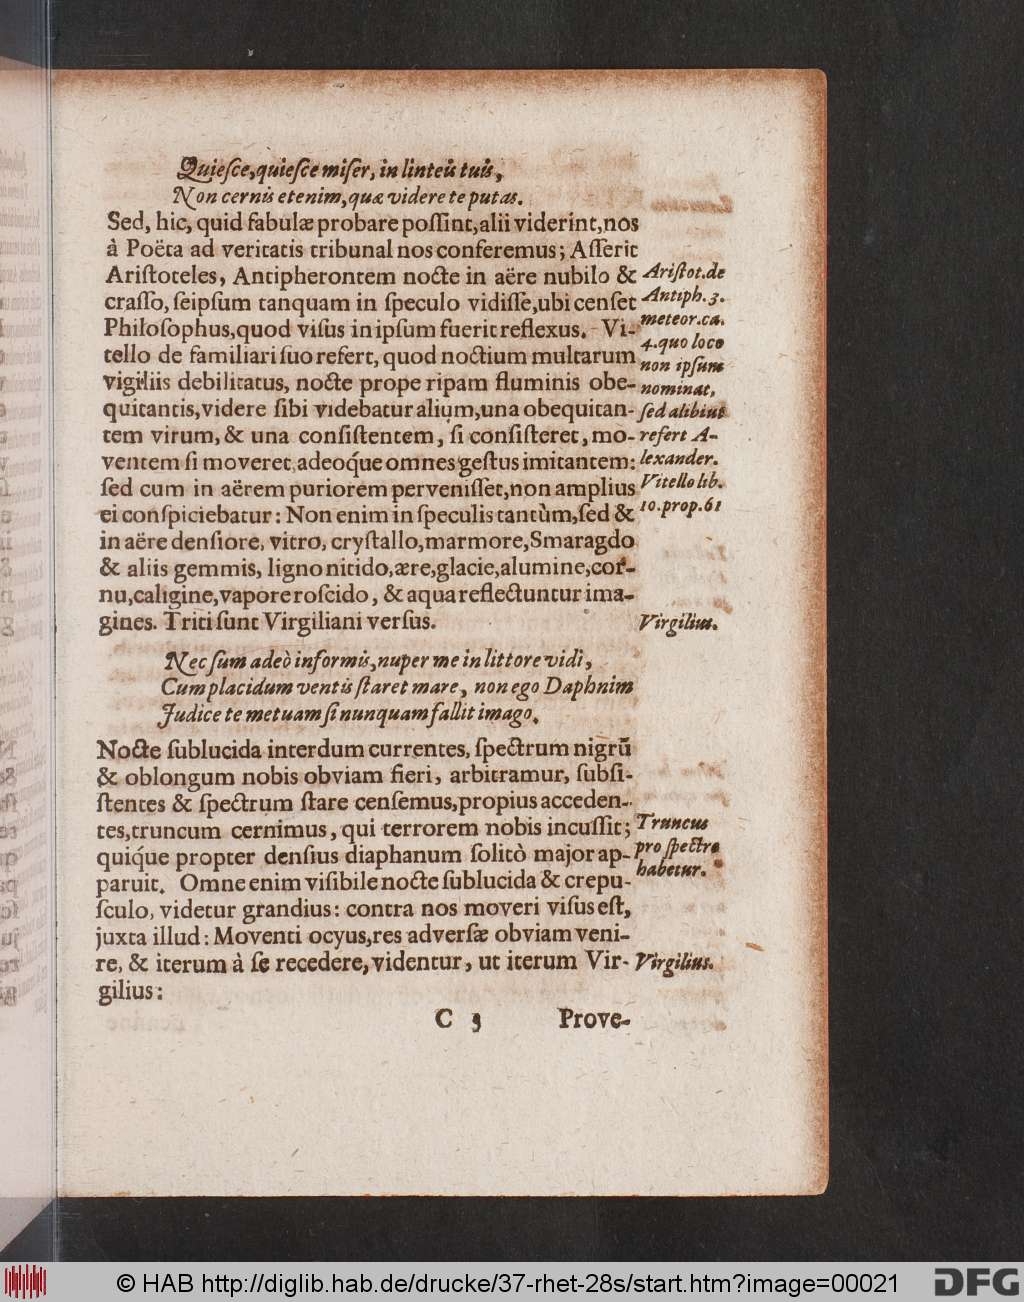 Quieſce, quieſce miſer, in linteis tuis,
Non cernis etenim, quæ videre te putas.
Sed, hic, quid fabulæ probare poſſint, alii viderint, nos
à Poëta ad veritatis tribunal nos conferemus; Aſſerit
Ariſtoteles, Antipherontem nocte in aëre nubilo &
craſſo, ſeipſum tanquam in ſpeculo vidiſſe, ubi cenſet
Philoſophus, quod viſus in ipſum fuerit reflexus. Vi-
tello de familiari ſuo refert, quod noctium multarum
vigiliis debilitatus, nocte prope ripam fluminis obe-
quitantis, videre ſibi videbatur alium, una obequitan-
tem virum, & una conſiſtentem, ſi conſiſteret, mo-
ventem ſi moveret, adeoq́ue omnes geſtus imitantem:
ſed cum in aërem puriorem perveniſſet, non amplius
ei conſpiciebatur: Non enim in ſpeculis tantùm, ſed &
in aëre denſiore, vitro, cryſtallo, marmore, Smaragdo
& aliis gemmis, ligno nitido, ære, glacie, alumine, cor-
nu, caligine, vapore roſcido, & aqua reflectuntur ima-
gines. Triti ſunt Virgiliani verſus.
Nec ſum adeò informis, nuper me in littore vidi,
Cum placidum ventis ſtaret mare, non ego Daphnim
Judice te metuam ſi nunquam fallit imago.
Nocte ſublucida interdum currentes, ſpectrum nigrũ
& oblongum nobis obviam fieri, arbitramur, ſubſi-
ſtentes & ſpectrum ſtare cenſemus, propius acceden-
tes, truncum cernimus, qui terrorem nobis incuſſit;
quiq́ue propter denſius diaphanum ſolitò major ap-
paruit. Omne enim viſibile nocte ſublucida & crepu-
ſculo, videtur grandius: contra nos moveri viſus eſt,
juxta illud: Moventi ocyus, res adverſæ obviam veni-
re, & iterum à ſe recedere, videntur, ut iterum Vir-
gilius:
C 3 Prove-
Ariſtot. de
Antiph. 3.
meteor. ca.
4. quo loco
non ipſum
nominat,
ſed alibi ut
refert A-
lexander.
Vitello lib.
10. prop. 61
Virgilius.
Truncus
pro ſpectro
habetur.
Virgilius.
© HAB http://diglib.hab.de/drucke/37-rhet-28s/start.htm?image=00021
DFG